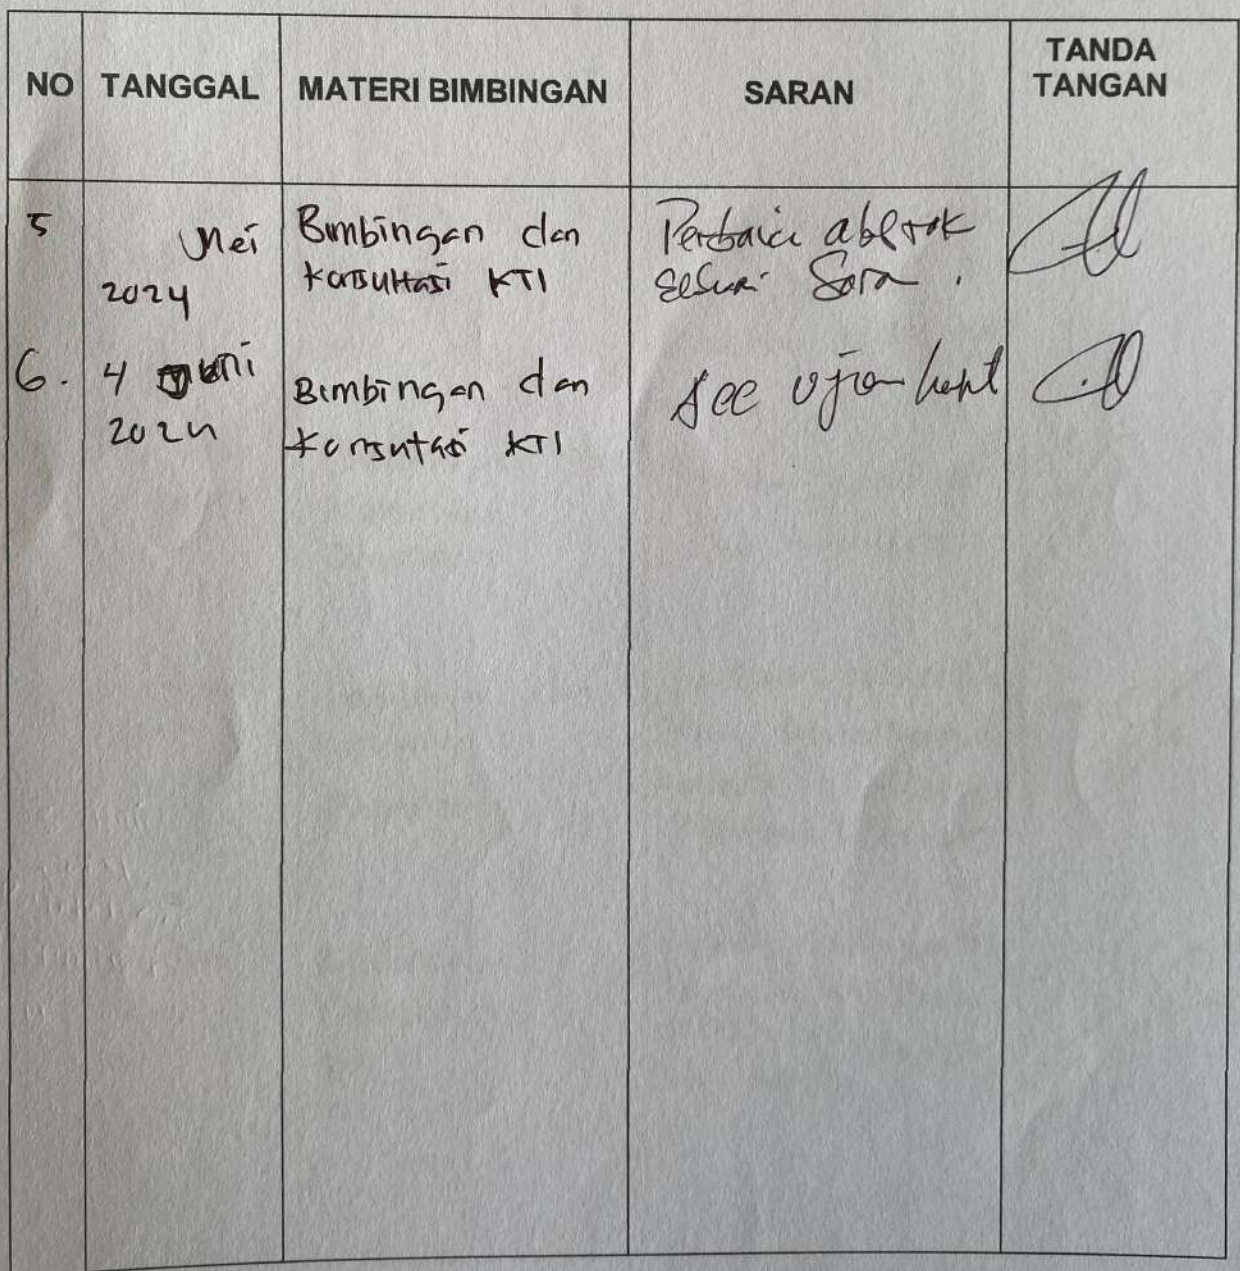 NO TANGGAL MATERI BIMBINGAN SARAN TANDA TANGAN
5 Mei 2024 Bimbingan dan Konsultasi KTI Perbaiki abstrak sesuai Saran.
6. 4 Juni 2024 Bimbingan dan Konsultasi KTI Acc ujian